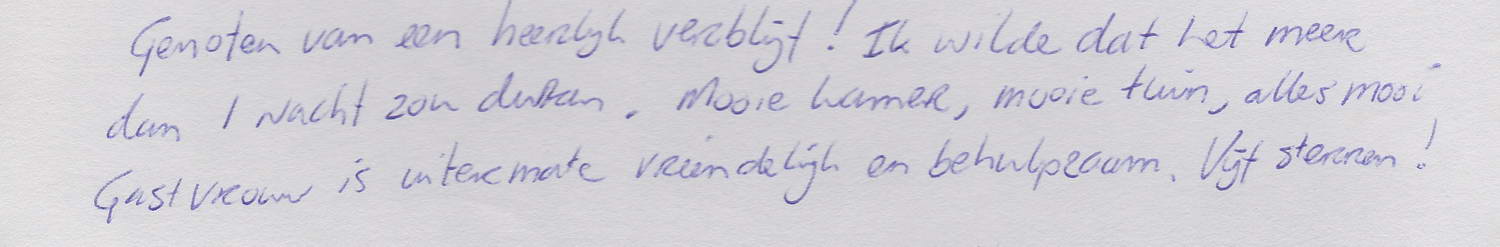 Genoten van een heerlijk verblijf! Ik wilde dat het meer
dan 1 nacht zou duren. Mooie kamer, mooie tuin, alles mooi
Gastvrouw is uitermate vriendelijk en behulpzaam. Vijf sterren!